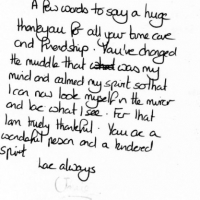 A few words to say a huge
thankyou for all your time care
and friendship. You've changed
the muddle that was my
mind and calmed my spirit so that
I can now look myself in the mirror
and like what I see. For that
I am truly thankful. You are a
wonderful person and a kindered
spirit
Love always